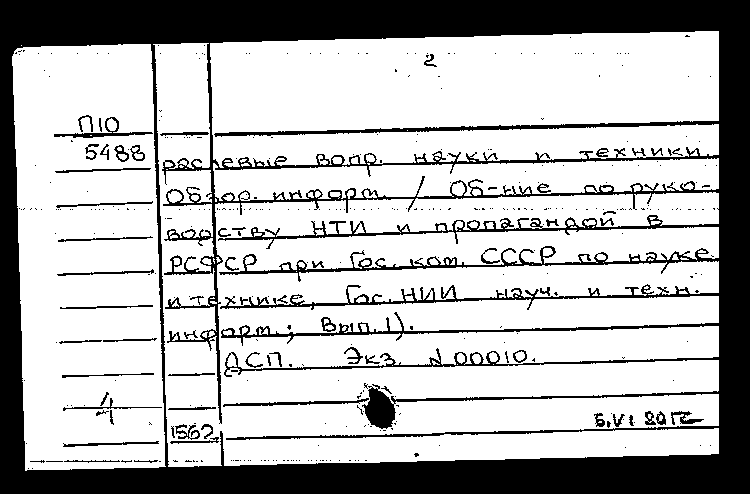 2
П10
5488
раслевые вопр. науки и техники.
Обзор. информ. / Об-ние по руко-
водству НТИ и пропагандой в
РСФСР при Гос. ком. СССР по науке
и технике, Гос. НИИ науч. и техн.
информ.; Вып. 1).
ДСП. Экз. №00010.
4
1562
5.VI